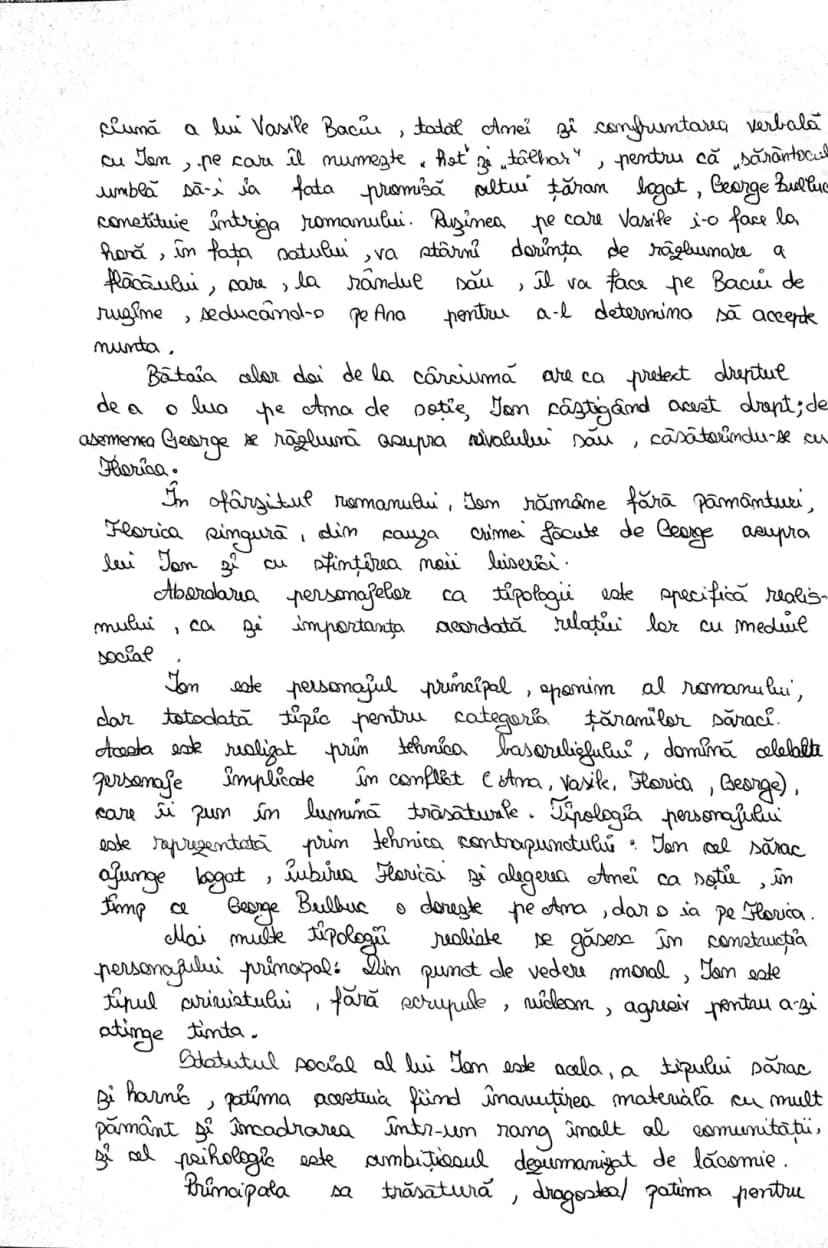 ciumă a lui Vasile Baciu, tatăl Anei și confruntarea verbală
cu Ion, pe care îl numește „hoț" și „tâlhar", pentru că „sărântocul
umblă să-i ia fata promisă altui țăran bogat, George Bulbuc
constituie intriga romanului. Rușinea pe care Vasile i-o face la
horă, în fața satului, va stârni dorința de răzbunare a
flăcăului, care, la rândul său, îl va face pe Baciu de
rușine, seducând-o pe Ana pentru a-l determina să accepte
nunta.
Bătaia celor doi de la cârciumă are ca pretext dreptul
de a o lua pe Ana de soție, Ion câștigând acest drept; de
asemenea George se răzbună asupra rivalului său, căsătorindu-se cu
Florica.
În sfârșitul romanului, Ion rămâne fără pământuri,
Florica singură, din cauza crimei făcute de George asupra
lui Ion și cu sfințirea noii biserici.
Abordarea personajelor ca tipologii este specifică realis-
mului, ca și importanța acordată relației lor cu mediul
social.
Ion este personajul principal, eponim al romanului,
dar totodată tipic pentru categoria țăranilor săraci.
Acesta este realizat prin tehnica basoreliefului, domină celelalte
personaje implicate în conflict (Ana, Vasile, Florica, George),
care îi pun în lumină trăsăturile. Tipologia personajului
este reprezentată prin tehnica contrapunctului: Ion cel sărac
ajunge bogat, iubirea Floricăi și alegerea Anei ca soție, în
timp ce George Bulbuc o dorește pe Ana, dar o ia pe Florica.
Mai multe tipologii realiste se găsesc în construcția
personajului principal: Din punct de vedere moral, Ion este
tipul arivistului, fără scrupule, viclean, agresiv pentru a-și
atinge ținta.
Statutul social al lui Ion este acela, a tipului sărac
și harnic, patima acestuia fiind înavuțirea materială cu mult
pământ și încadrarea într-un rang înalt al comunității,
și cel psihologic este ambițiosul dezumanizat de lăcomie.
Principala sa trăsătură, dragostea/ patima pentru